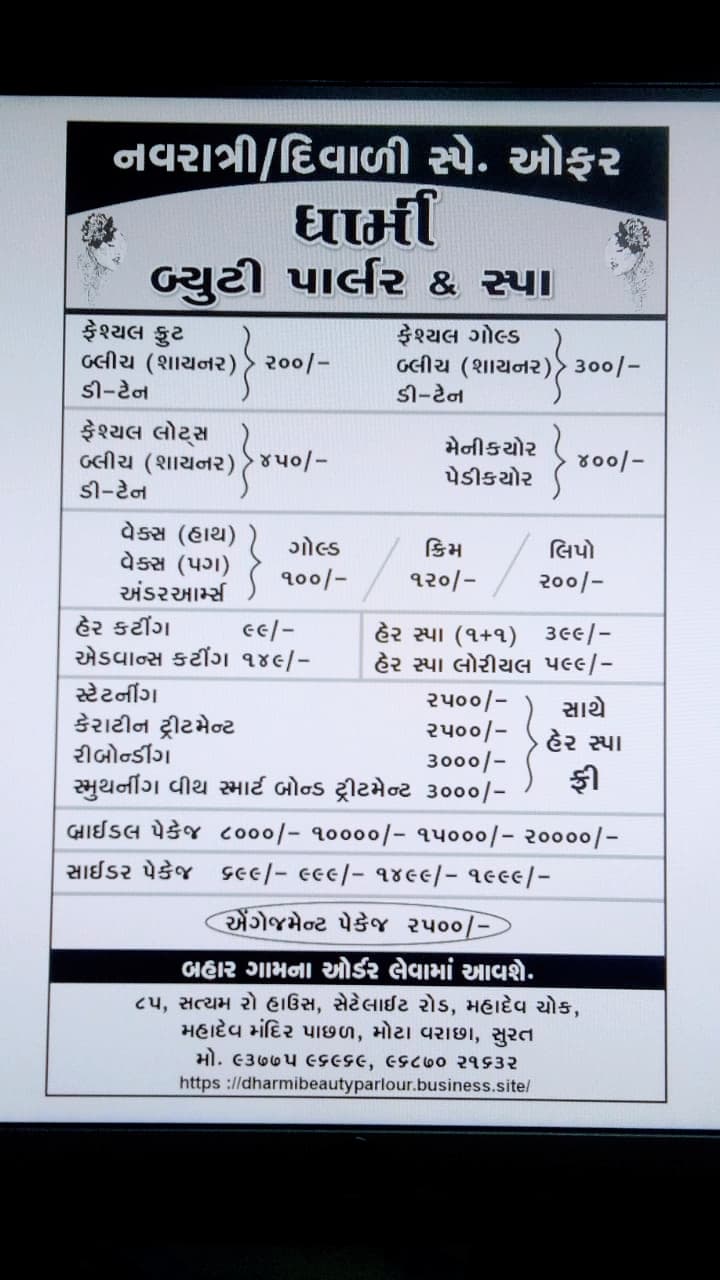 નવરાત્રી/દિવાળી સ્પે. ઓફર
ધામી
બ્યુટી પાર્લર & સ્પા
ફેશ્યલ ફ્રુટ
બ્લીચ (શાયનર) ૨૦૦/-
ડી-ટેન
ફેશ્યલ ગોલ્ડ
બ્લીચ (શાયનર) ૩૦૦/-
ડી-ટેન
ફેશ્યલ લોટ્સ
બ્લીચ (શાયનર) ૪૫૦/-
ડી-ટેન
મેનીકયોર
પેડીકયોર ૪૦૦/-
વેક્સ (હાથ)
વેક્સ (પગ)
અંડરઆર્મ્સ
ગોલ્ડ / ક્રિમ / લિપો
૧૦૦/- ૧૨૦/- ૨૦૦/-
હેર કટીંગ ૯૯/-
એડવાન્સ કટીંગ ૧૪૯/-
હેર સ્પા (૧+૧) ૩૯૯/-
હેર સ્પા લોરીયલ ૫૯૯/-
સ્ટેટનીંગ ૨૫૦૦/-
કેરાટીન ટ્રીટમેન્ટ ૨૫૦૦/-
રીબોન્ડીંગ ૩૦૦૦/-
સ્મુથનીંગ વીથ સ્માર્ટ બોન્ડ ટ્રીટમેન્ટ ૩૦૦૦/-
સાથે
હેર સ્પા
ફ્રી
બ્રાઈડલ પેકેજ ૮૦૦૦/- ૧૦૦૦૦/- ૧૫૦૦૦/- ૨૦૦૦૦/-
સાઈડર પેકેજ ૬૯૯/- ૯૯૯/- ૧૪૯૯/- ૧૯૯૯/-
એંગેજમેન્ટ પેકેજ ૨૫૦૦/-
બહાર ગામના ઓર્ડર લેવામાં આવશે.
૮૫, સત્યમ રો હાઉસ, સેટેલાઈટ રોડ, મહાદેવ ચોક,
મહાદેવ મંદિર પાછળ, મોટા વરાછા, સુરત
મો. ૯૩૭૭૫ ૯૬૯૬૯, ૯૬૮૭૦ ૨૧૬૩૨
https ://dharmibeautyparlour.business.site/